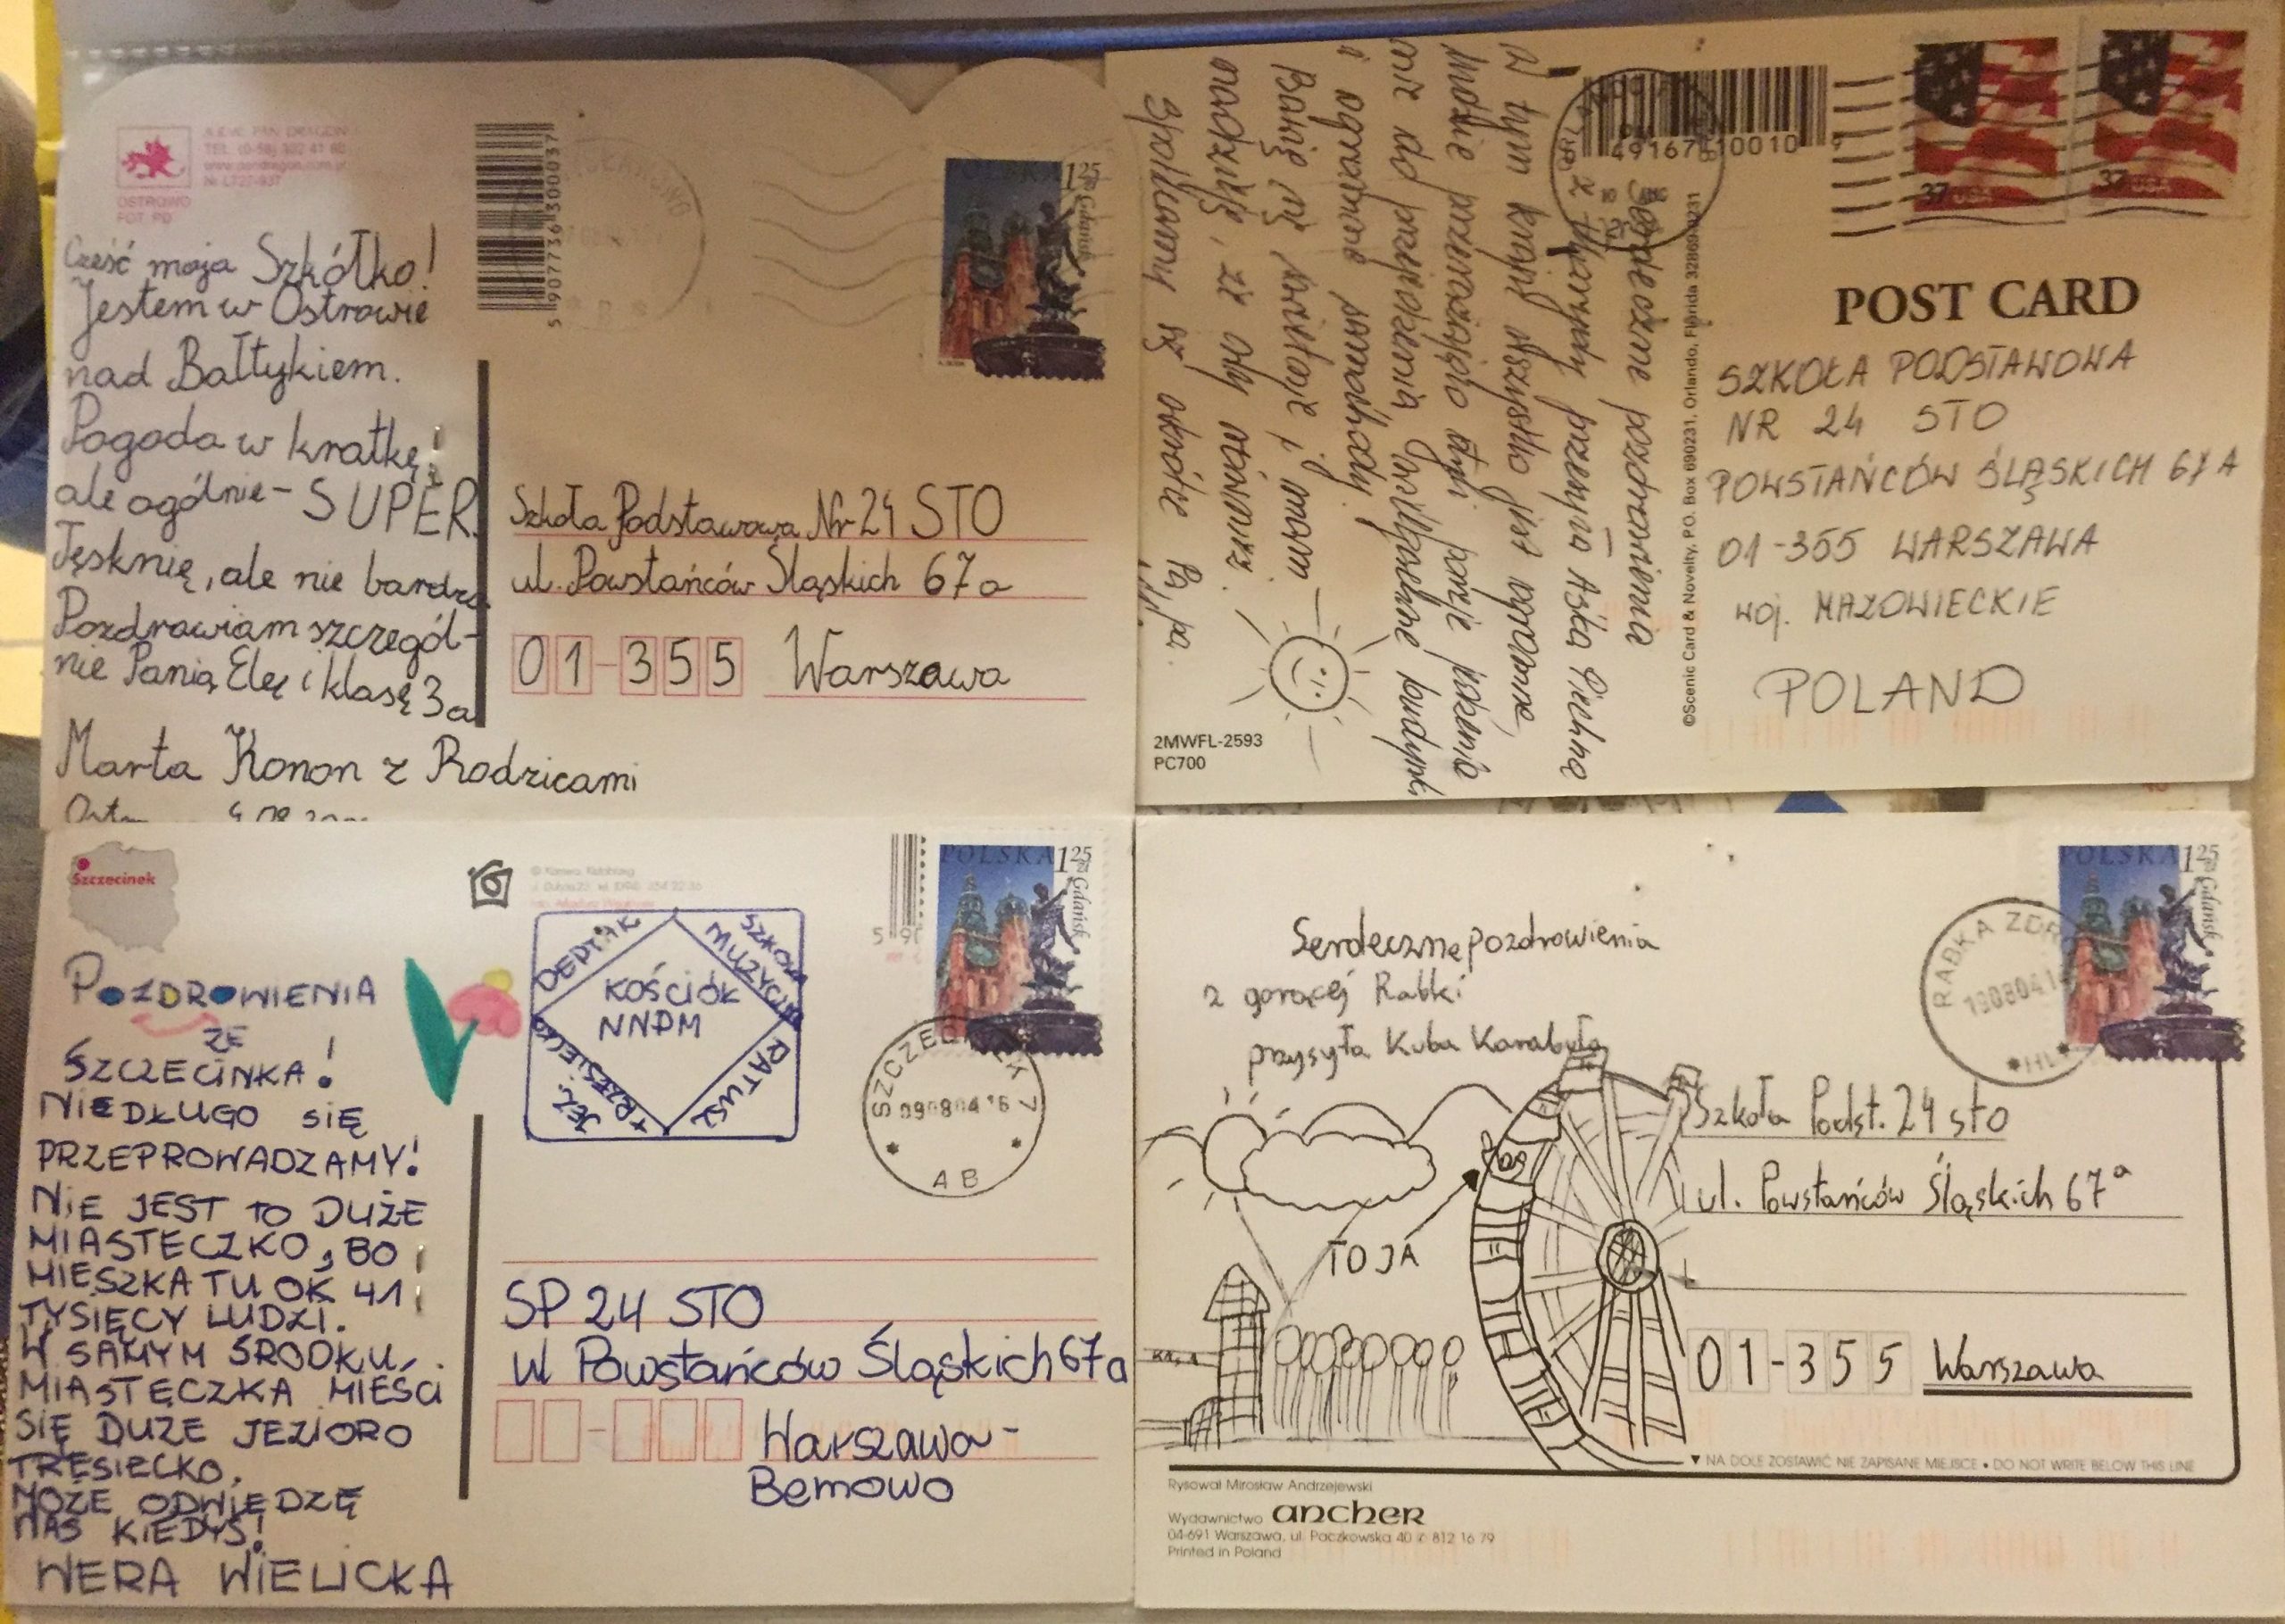 OSTROWO
FOT. PD
5 907736 300037
1 25
Gdańsk
Cześć moja Szkółko!
Jestem w Ostrowie
nad Bałtykiem.
Pogoda w kratkę!
ale ogólnie - SUPER.
Tęsknię, ale nie bardzo
Pozdrawiam szczegól-
nie Panią Elę i klasę 3a
Marta Konon z Rodzicami
Szkoła Podstawowa Nr 24 STO
ul. Powstańców Śląskich 67a
01-355 Warszawa
Serdeczne pozdrowienia
z przesyła Aśka Piechna
W tym kraju wszystko jest ogromne
niż do przejedzenia
i ogromne samochody.
Bawię się świetnie i mam
nadzieję, że wy również.
Spotkamy się wkrótce Pa, pa.
2MWFL-2593
PC700
©Scenic Card & Novelty, P.O. Box 690231, Orlando, Florida 32869-0231
37 USA
37 USA
POST CARD
SZKOŁA PODSTAWOWA
NR 24 STO
POWSTAŃCÓW ŚLĄSKICH 67A
01-355 WARSZAWA
woj. MAZOWIECKIE
POLAND
Szczecinek
POZDROWIENIA
ZE
SZCZECINKA!
NIEDŁUGO SIĘ
PRZEPROWADZAMY!
NIE JEST TO DUŻE
MIASTECZKO, BO
MIESZKA TU OK 41
TYSIĘCY LUDZI.
W SAMYM ŚRODKU
MIASTECZKA MIEŚCI
SIĘ DUŻE JEZIORO
TRESIECKO.
MOŻE ODWIĘDZĘ
NAS KIEDYŚ!
WERA WIELICKA
DEPTAK
SZKOŁA
MUZYCZN
KOŚCIÓŁ
NNPM
JEZ.
TRZESIECKO
RATUSZ
POLSKA 1 25
Gdańsk
SZCZECINEK 7
090804 16
AB
SP 24 STO
ul Powstańców Śląskich 67a
Warszawa-
Bemowo
Serdeczne pozdrowienia
z gorącej Rabki
przysyła Kuba Karabuła
POLSKA 1 25
Gdańsk
RABKA ZDRÓ
190804 14
TO JA
Szkoła Podst. 24 sto
ul. Powstańców Śląskich 67a
01-355 Warszawa
▼ NA DOLE ZOSTAWIĆ NIE ZAPISANE MIEJSCE • DO NOT WRITE BELOW THIS LINE
Rysował Mirosław Andrzejewski
Wydawnictwo ancher
04-691 Warszawa, ul. Paczkowska 40 ✆ 812 16 79
Printed in Poland